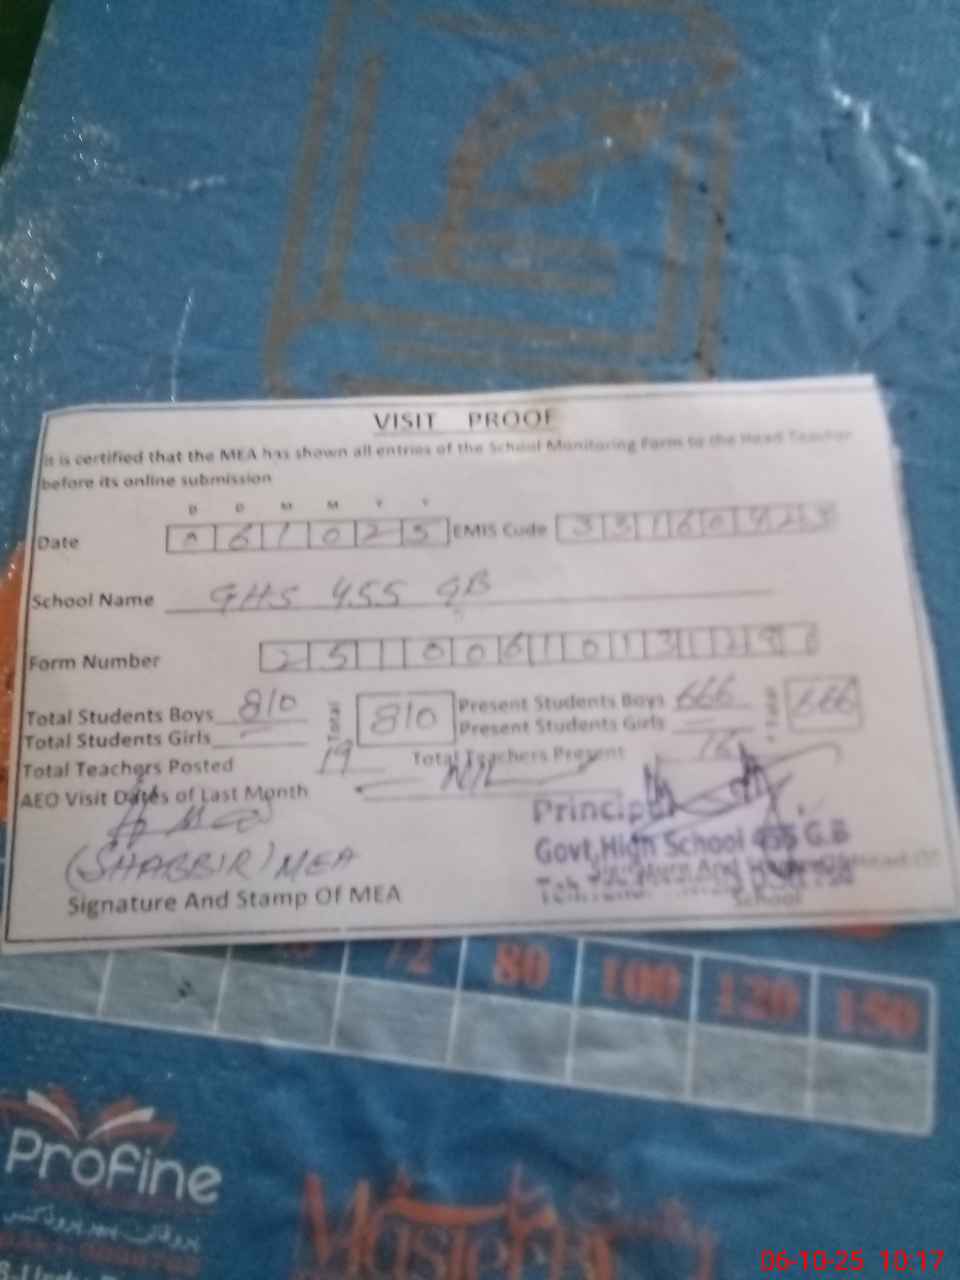 VISIT PROOF
It is certified that the MEA has shown all entries of the School Monitoring Form to the Head Teacher
before its online submission
D D M M Y Y
Date 0 6 1 0 2 5 EMIS Code 3 3 1 6 0 4 2 3
School Name GHS 455 GB
Form Number 2 5 1 0 0 6 1 0 1 3 1 2 9
Total Students Boys 810 Total 810 Present Students Boys 666 Total 666
Total Students Girls — Present Students Girls —
Total Teachers Posted 19 Total Teachers Present 16
AEO Visit Dates of Last Month NIL
Principal
Govt, High School 455 G.B
(SHABBIR) MEA
Signature And Stamp Of MEA
School
72 80 100 120 150
Profine
06-10-25 10:17